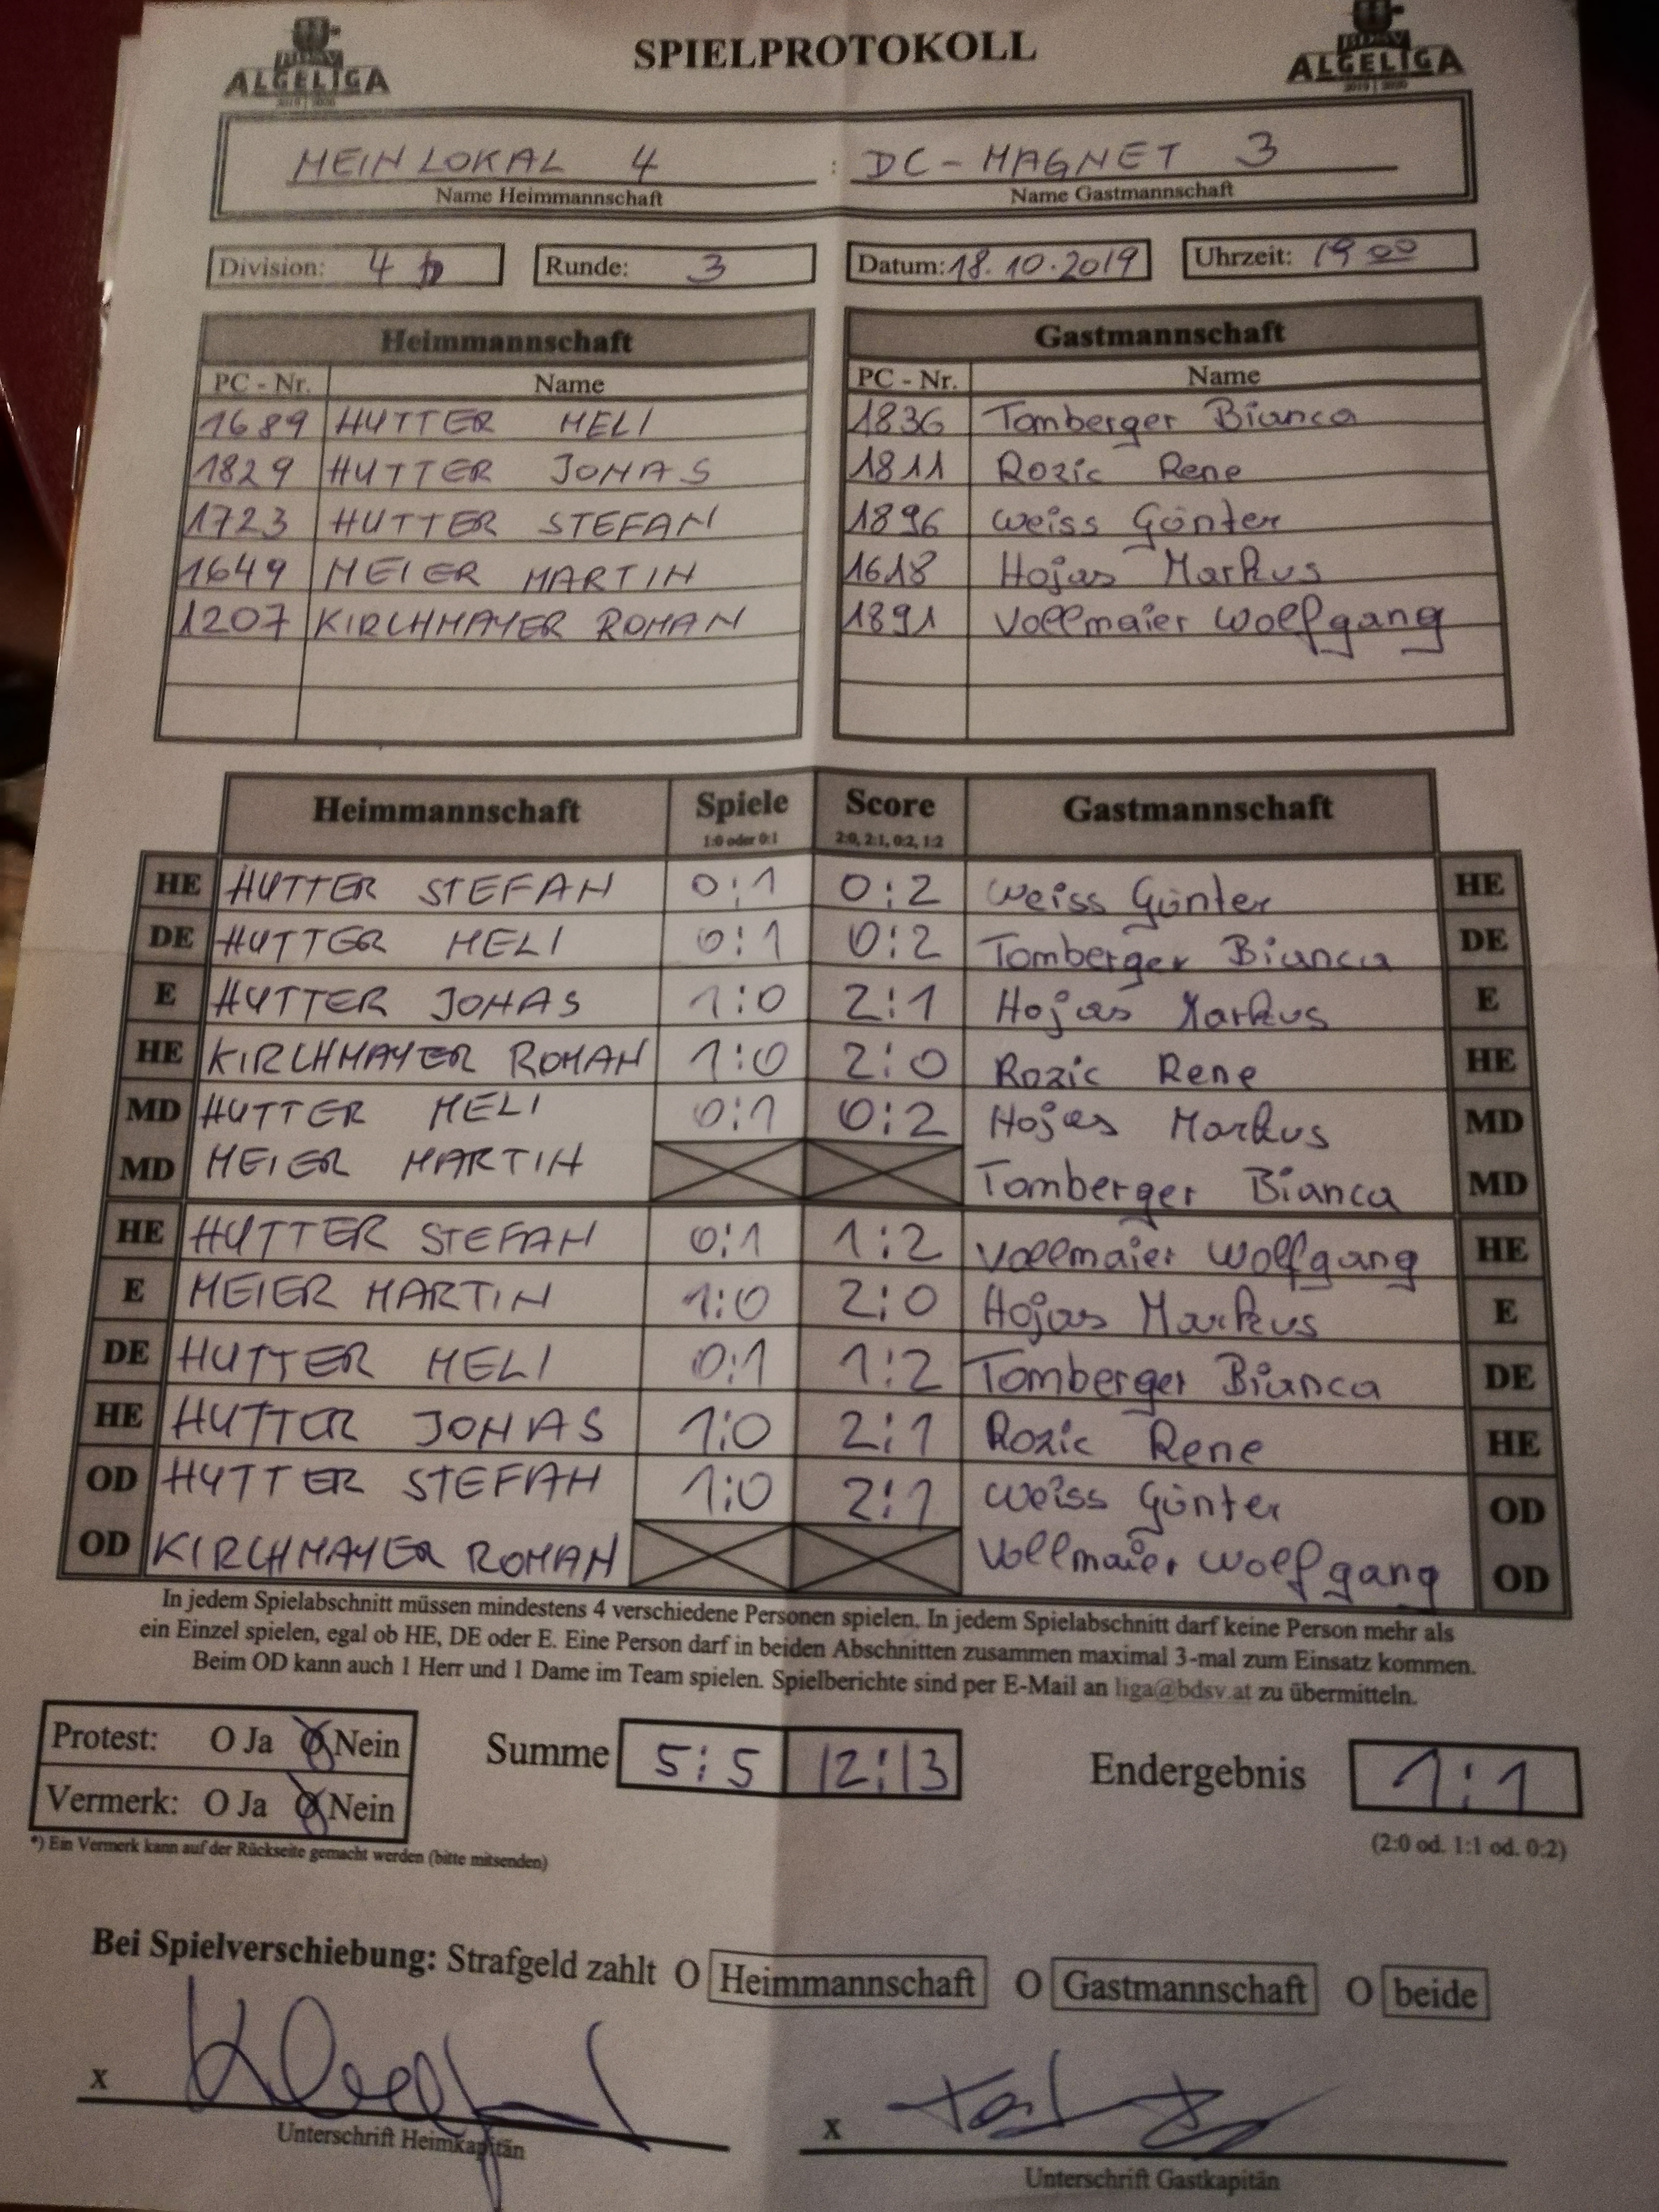 ALGELIGA
2019 | 2020
SPIELPROTOKOLL
ALGELIGA
2019 | 2020
MEIN LOKAL 4 : DC-MAGNET 3
Name Heimmannschaft Name Gastmannschaft
Division: 4 b Runde: 3 Datum: 18.10.2019 Uhrzeit: 19 00
Heimmannschaft Gastmannschaft
PC - Nr. Name PC - Nr. Name
1689 HUTTER MELI 1836 Tomberger Bianca
1829 HUTTER JONAS 1811 Rozic Rene
1723 HUTTER STEFAN 1896 Weiss Günter
1649 MEIER MARTIN 1618 Hojas Markus
1207 KIRCHMAYER ROMAN 1891 Vollmaier Wolfgang
Heimmannschaft Spiele Score Gastmannschaft
1:0 oder 0:1 2:0, 2:1, 0:2, 1:2
HE HUTTER STEFAN 0:1 0:2 Weiss Günter HE
DE HUTTER MELI 0:1 0:2 Tomberger Bianca DE
E HUTTER JONAS 1:0 2:1 Hojas Markus E
HE KIRCHMAYER ROMAN 1:0 2:0 Rozic Rene HE
MD HUTTER MELI 0:1 0:2 Hojas Markus MD
MD MEIER MARTIN Tomberger Bianca MD
HE HUTTER STEFAN 0:1 1:2 Vollmaier Wolfgang HE
E MEIER MARTIN 1:0 2:0 Hojas Markus E
DE HUTTER MELI 0:1 1:2 Tomberger Bianca DE
HE HUTTER JONAS 1:0 2:1 Rozic Rene HE
OD HUTTER STEFAN 1:0 2:1 Weiss Günter OD
OD KIRCHMAYER ROMAN Vollmaier Wolfgang OD
In jedem Spielabschnitt müssen mindestens 4 verschiedene Personen spielen. In jedem Spielabschnitt darf keine Person mehr als
ein Einzel spielen, egal ob HE, DE oder E. Eine Person darf in beiden Abschnitten zusammen maximal 3-mal zum Einsatz kommen.
Beim OD kann auch 1 Herr und 1 Dame im Team spielen. Spielberichte sind per E-Mail an liga@bdsv.at zu übermitteln.
Protest: O Ja O Nein Summe 5:5 12:13 Endergebnis 1:1
Vermerk: O Ja O Nein
(2:0 od. 1:1 od. 0:2)
*) Ein Vermerk kann auf der Rückseite gemacht werden (bitte mitsenden)
Bei Spielverschiebung: Strafgeld zahlt O Heimmannschaft O Gastmannschaft O beide
x x
Unterschrift Heimkapitän Unterschrift Gastkapitän